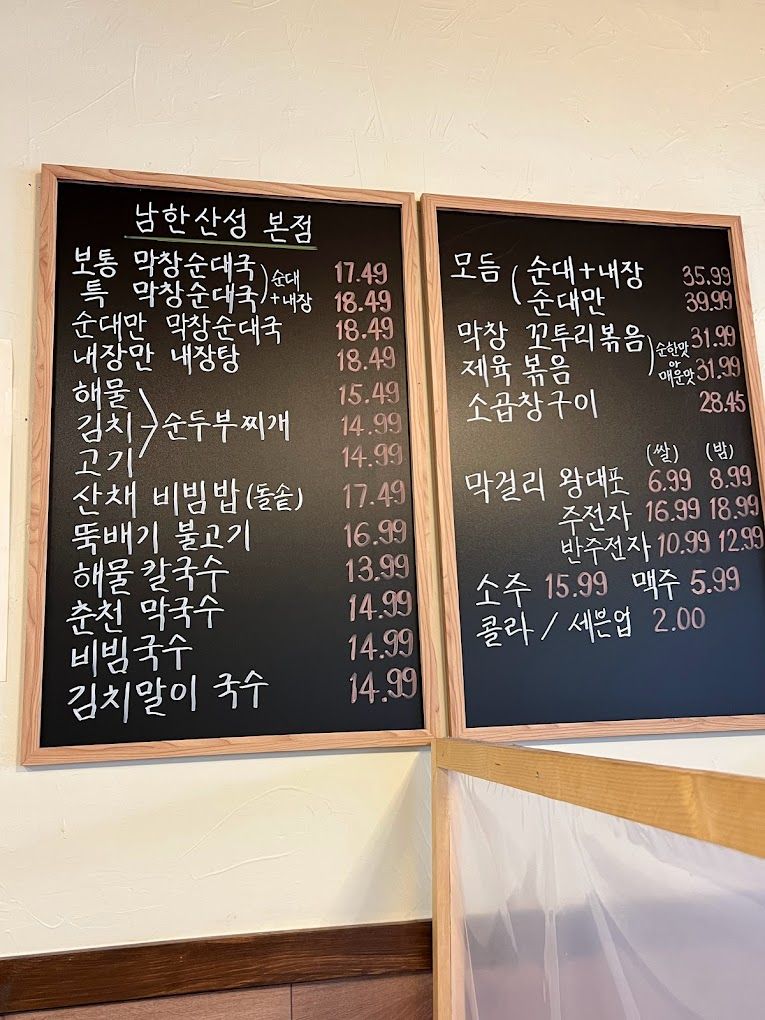 남한산성 본점
보통 막창순대국 17.49
특 막창순대국 18.49
) 순대
+내장
순대만 막창순대국 18.49
내장만 내장탕 18.49
해물 15.49
김치 순두부찌개 14.99
고기 14.99
산채 비빔밥 (돌솥) 17.49
뚝배기 불고기 16.99
해물 칼국수 13.99
춘천 막국수 14.99
비빔국수 14.99
김치말이 국수 14.99
모듬 ( 순대+내장 35.99
순대만 39.99
막창 꼬투리볶음 31.99
제육 볶음 31.99
) 순한맛
or
매운맛
소곱창구이 28.45
(쌀) (밤)
막걸리 왕대포 6.99 8.99
주전자 16.99 18.99
반주전자 10.99 12.99
소주 15.99 맥주 5.99
콜라 / 세븐업 2.00